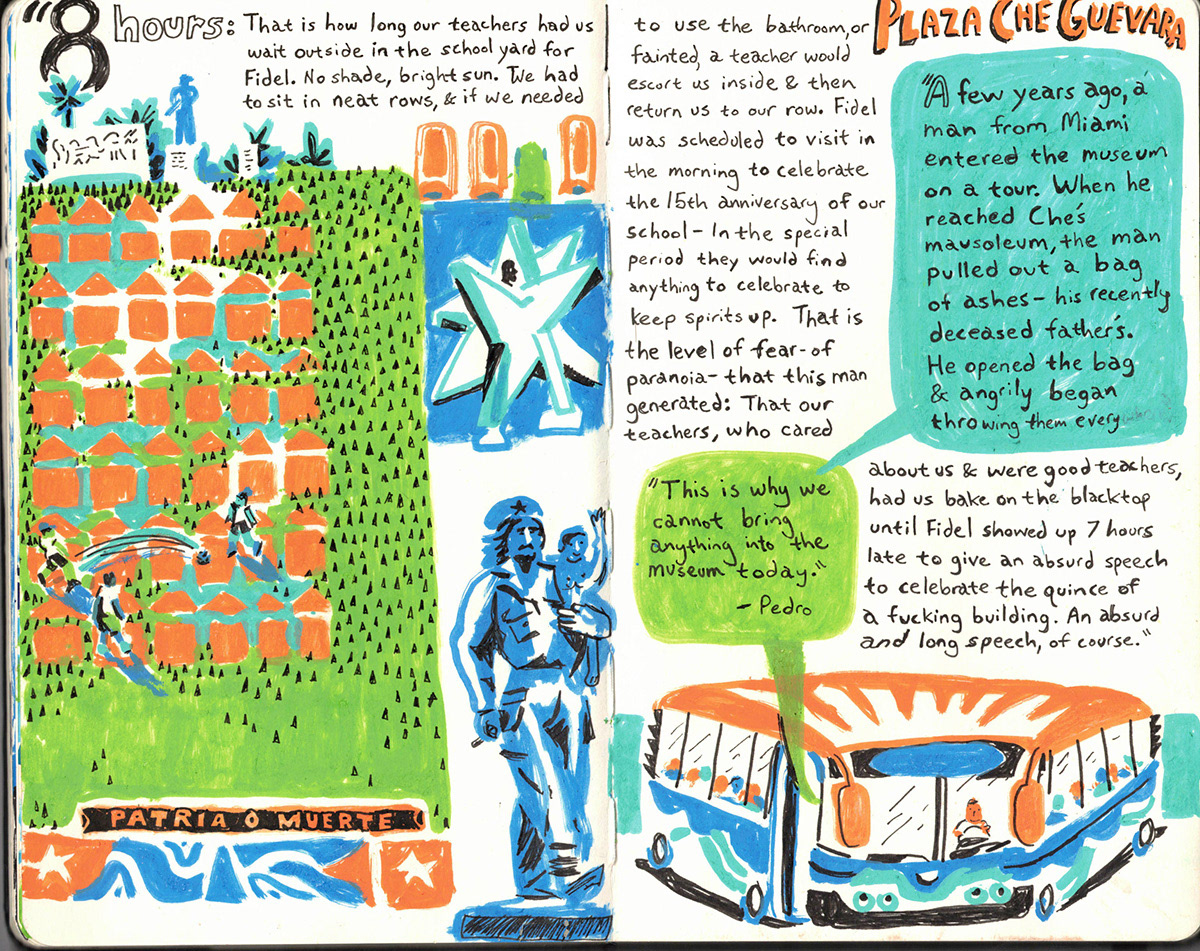 "8 hours: That is how long our teachers had us
wait outside in the school yard for
Fidel. No shade, bright sun. We had
to sit in neat rows, & if we needed
PATRIA O MUERTE
to use the bathroom, or
fainted, a teacher would
escort us inside & then
return us to our row. Fidel
was scheduled to visit in
the morning to celebrate
the 15th anniversary of our
school - In the special
period they would find
anything to celebrate to
keep spirits up. That is
the level of fear - of
paranoia - that this man
generated: That our
teachers, who cared
about us & were good teachers,
had us bake on the blacktop
until Fidel showed up 7 hours
late to give an absurd speech
to celebrate the quince of
a fucking building. An absurd
and long speech, of course."
PLAZA CHE GUEVARA
"A few years ago, a
man from Miami
entered the museum
on a tour. When he
reached Che's
mausoleum, the man
pulled out a bag
of ashes - his recently
deceased father's.
He opened the bag
& angrily began
throwing them every
"This is why we
cannot bring
anything into the
museum today."
- Pedro